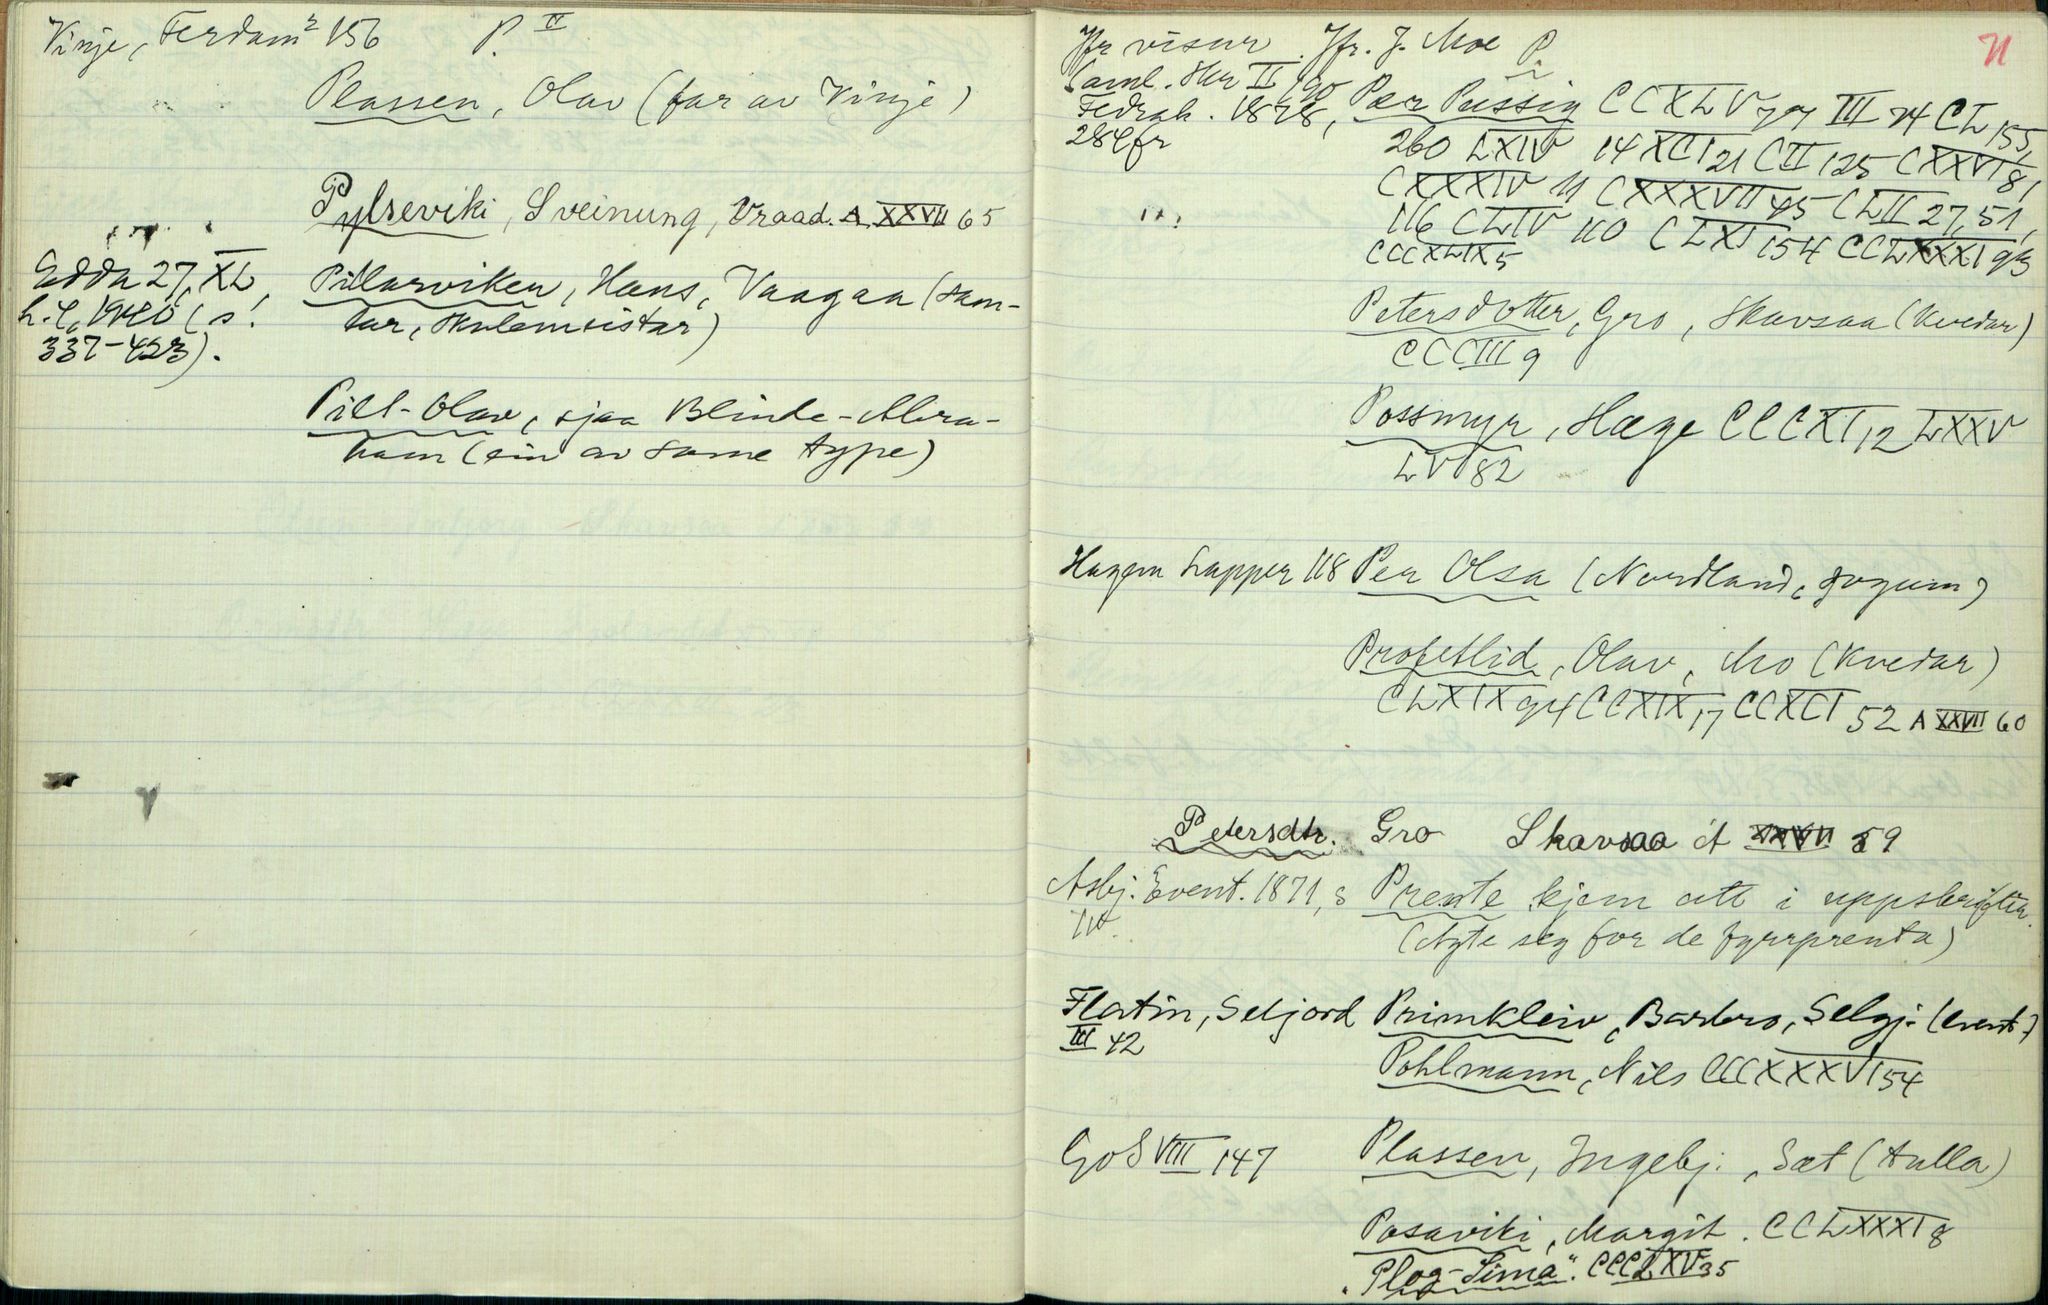 Vinje, Ferdam² 156 P. II
Plassen, Olav (far av Vinje)
Pylseviki, Sveinung, Vraad. A XXVII 65
Edda 27, XL,
337-423).
Pillarviken, Hans, Vaagaa (sam-
lar, skulemeistar)
Pill-Olav, sjaa Blinde-Abra-
ham (ein av same type)
Jfr visur. Jfr. J. Moe P.
Saml. Skr II 190
Fedrah. 1878,
284 fr
71
Per Pussig CCXLV 79 III 74 CL 155,
260 LXIV 14 XCI 21 CII 125 CXXVI 81
CXXXIV 11 CXXXVII 45 CLII 27, 51,
116 CLIV 110 CLXI 154 CCLXXXI 93
CCCXLIX 5
Petersdotter, Gro, Skavsaa (Kvedar)
CCCIII 9
Possmyr, Hæge CCCXI 12 LXXV
LVI 82
Hagem Lapper 118 Per Olsa (Nordland, sogum)
Profetlid, Olav, Mo (Kvedar)
CLXIX 94 CCXIX 17 CCXCI 52 A XXVII 60
Petersdtr. Gro Skavsaa A XXVII 59
Asbj. Event. 1871, s Prente kjem att i uppskrifter
110. (Agte seg for de fyrrprenta)
Flatin, Seljord Primkleiv, Barbro, Selgj. (event.)
III 42
Pohlmann, Nils CCCXXXVI 54
GoS VIII 147 Plassen, Ingebj., Sæt (Aulla)
Posaviki, Margit. CCLXXXI 8
"Plog-Sima". CCCLXV 35